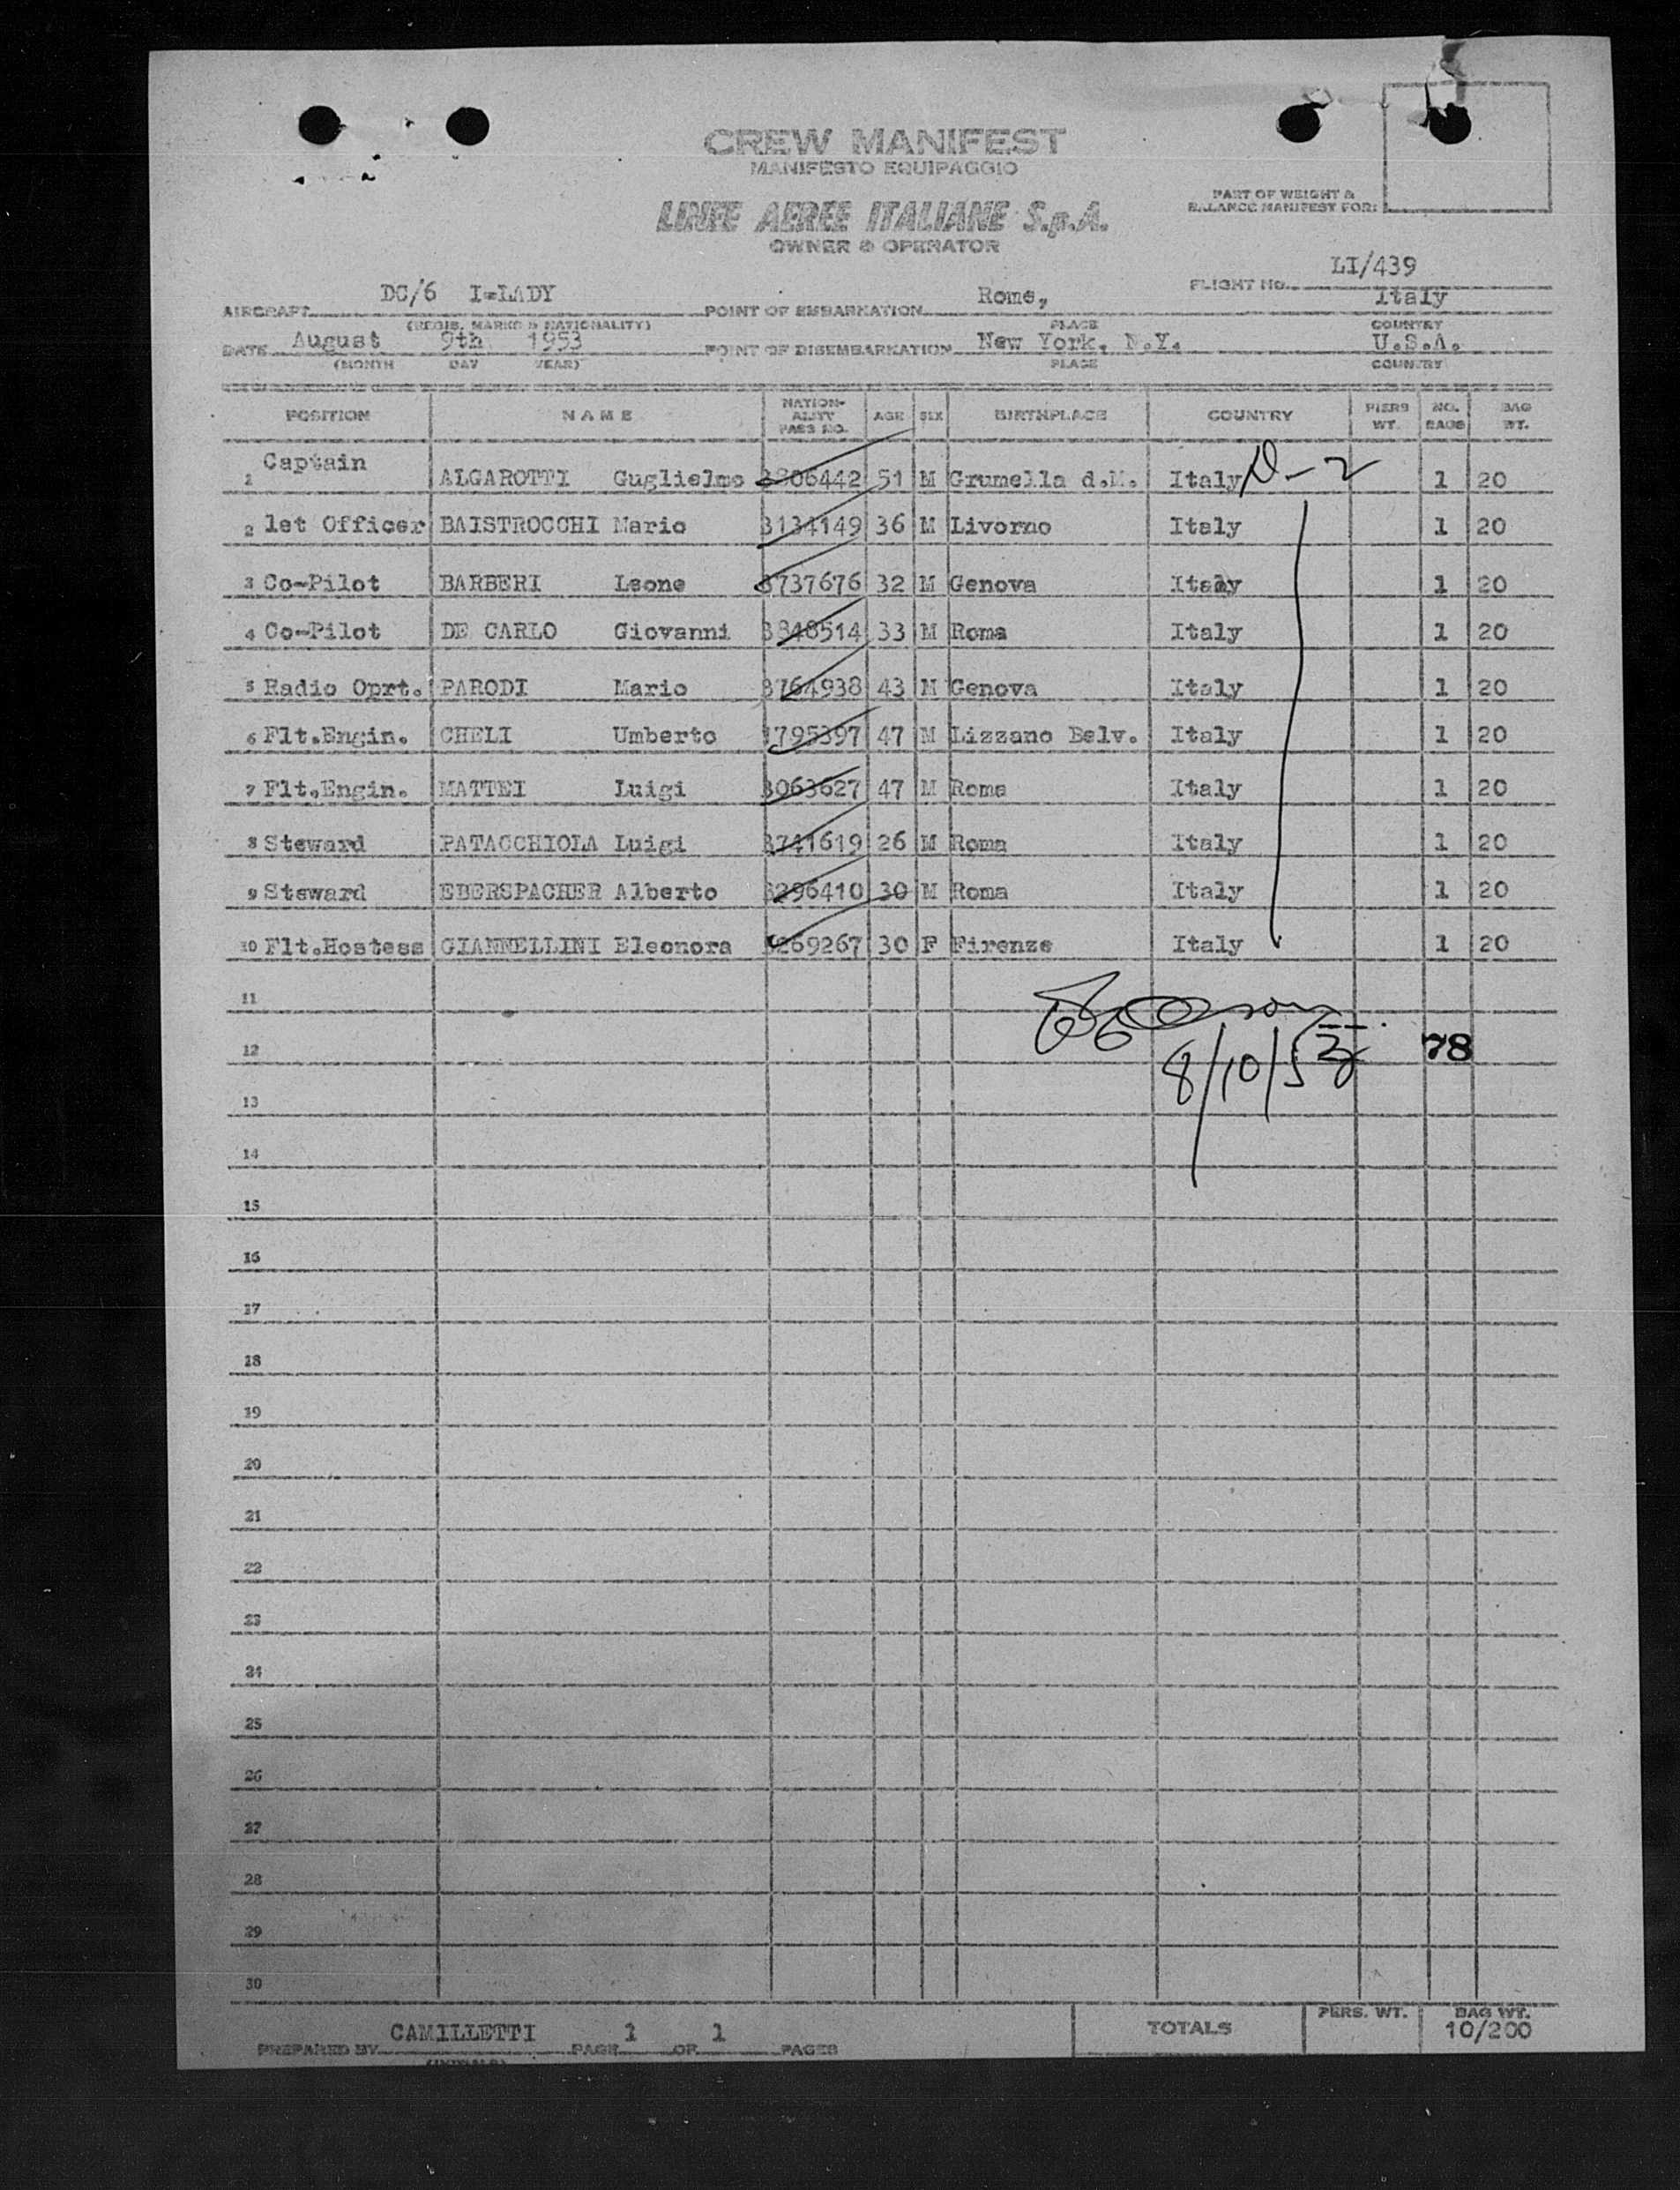 CREW MANIFEST
MANIFESTO EQUIPAGGIO
LINEE AEREE ITALIANE S.p.A.
OWNER & OPERATOR
PART OF WEIGHT &
BALANCE MANIFEST FOR:
FLIGHT No. LI/439
AIRCRAFT DC/6 I-LADY POINT OF EMBARKATION Rome, Italy
(REGIS. MARKS & NATIONALITY) PLACE COUNTRY
DATE August 9th 1953 POINT OF DISEMBARKATION New York, N.Y. U.S.A.
(MONTH DAY YEAR) PLACE COUNTRY
POSITION NAME NATION-ALITY PASS NO. AGE SEX BIRTHPLACE COUNTRY PERS WT. NO. BAGS BAG WT.
1 Captain ALGAROTTI Guglielmo 806442 51 M Grumella d.M. Italy D-2 1 20
2 1st Officer BAISTROCCHI Mario 3134149 36 M Livorno Italy 1 20
3 Co-Pilot BARBERI Leone 3737676 32 M Genova Italy 1 20
4 Co-Pilot DE CARLO Giovanni 3848514 33 M Roma Italy 1 20
5 Radio Oprt. PARODI Mario 3764938 43 M Genova Italy 1 20
6 Flt.Engin. CHELI Umberto 795397 47 M Lizzano Belv. Italy 1 20
7 Flt.Engin. MATTEI Luigi 3063627 47 M Roma Italy 1 20
8 Steward PATACCHIOLA Luigi 3741619 26 M Roma Italy 1 20
9 Steward EBERSPACHER Alberto 3296410 30 M Roma Italy 1 20
10 Flt.Hostess GIANNELLINI Eleonora 269267 30 F Firenze Italy 1 20
11
12 8/10/53 78
13
14
15
16
17
18
19
20
21
22
23
24
25
26
27
28
29
30
PREPARED BY CAMILLETTI PAGE 1 OF 1 PAGES TOTALS PERS. WT. BAG WT. 10/200
(INITIALS)